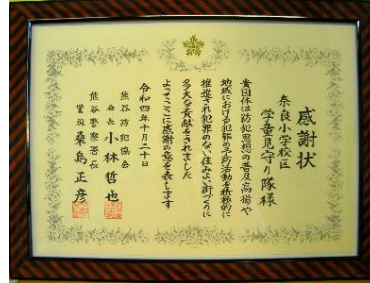 感謝状
奈良小学校区
学童見守り隊様
貴団体は防犯思想の普及高揚や
地域における犯罪の予防活動を積極的に
推進され犯罪のない住みよい街づくりに
多大な貢献をされました
よってここに感謝の意を表します
令和四年十月二十日
熊谷防犯協会
会長 小林哲也
熊谷警察署長
警視 桑島正彦